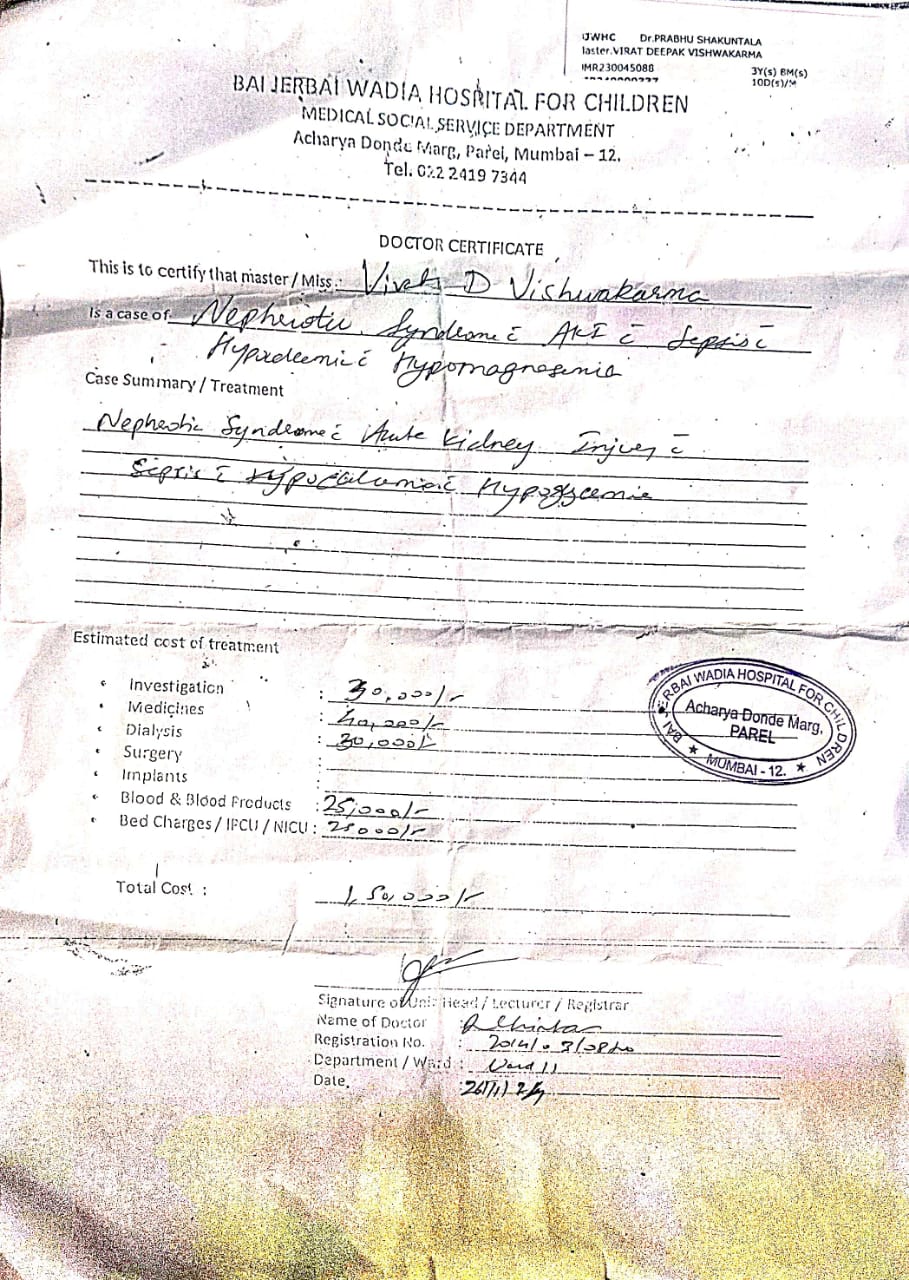 JWHC Dr.PRABHU SHAKUNTALA
laster.VIRAT DEEPAK VISHWAKARMA
IMR230045088
3Y(s) 8M(s)
10D(s)/M
BAI JERBAI WADIA HOSPITAL FOR CHILDREN
MEDICAL SOCIAL SERVICE DEPARTMENT
Acharya Donde Marg, Parel, Mumbai – 12.
Tel. 022 2419 7344
DOCTOR CERTIFICATE
This is to certify that master / Miss : D Vishwakarma
Is a case of Syndrome c̄ AKI c̄ Sepsis c̄
Hypomagnesemia
Case Summary / Treatment
Nephrotic Syndrome c̄ Acute Kidney Injury c̄
Sepsis c̄
Estimated cost of treatment
• Investigation : 30,000/-
• Medicines : 40,000/-
• Dialysis : 30,000/-
• Surgery :
• Implants :
• Blood & Blood Products : 25,000/-
• Bed Charges / IPCU / NICU : 25000/-
Total Cost : 1,50,000/-
BAI JERBAI WADIA HOSPITAL FOR CHILDREN
Acharya Donde Marg,
PAREL
★ MUMBAI - 12. ★
Signature of Unit Head / Lecturer / Registrar
Name of Doctor :
Registration No. :
Department / Ward : Ward 11
Date.